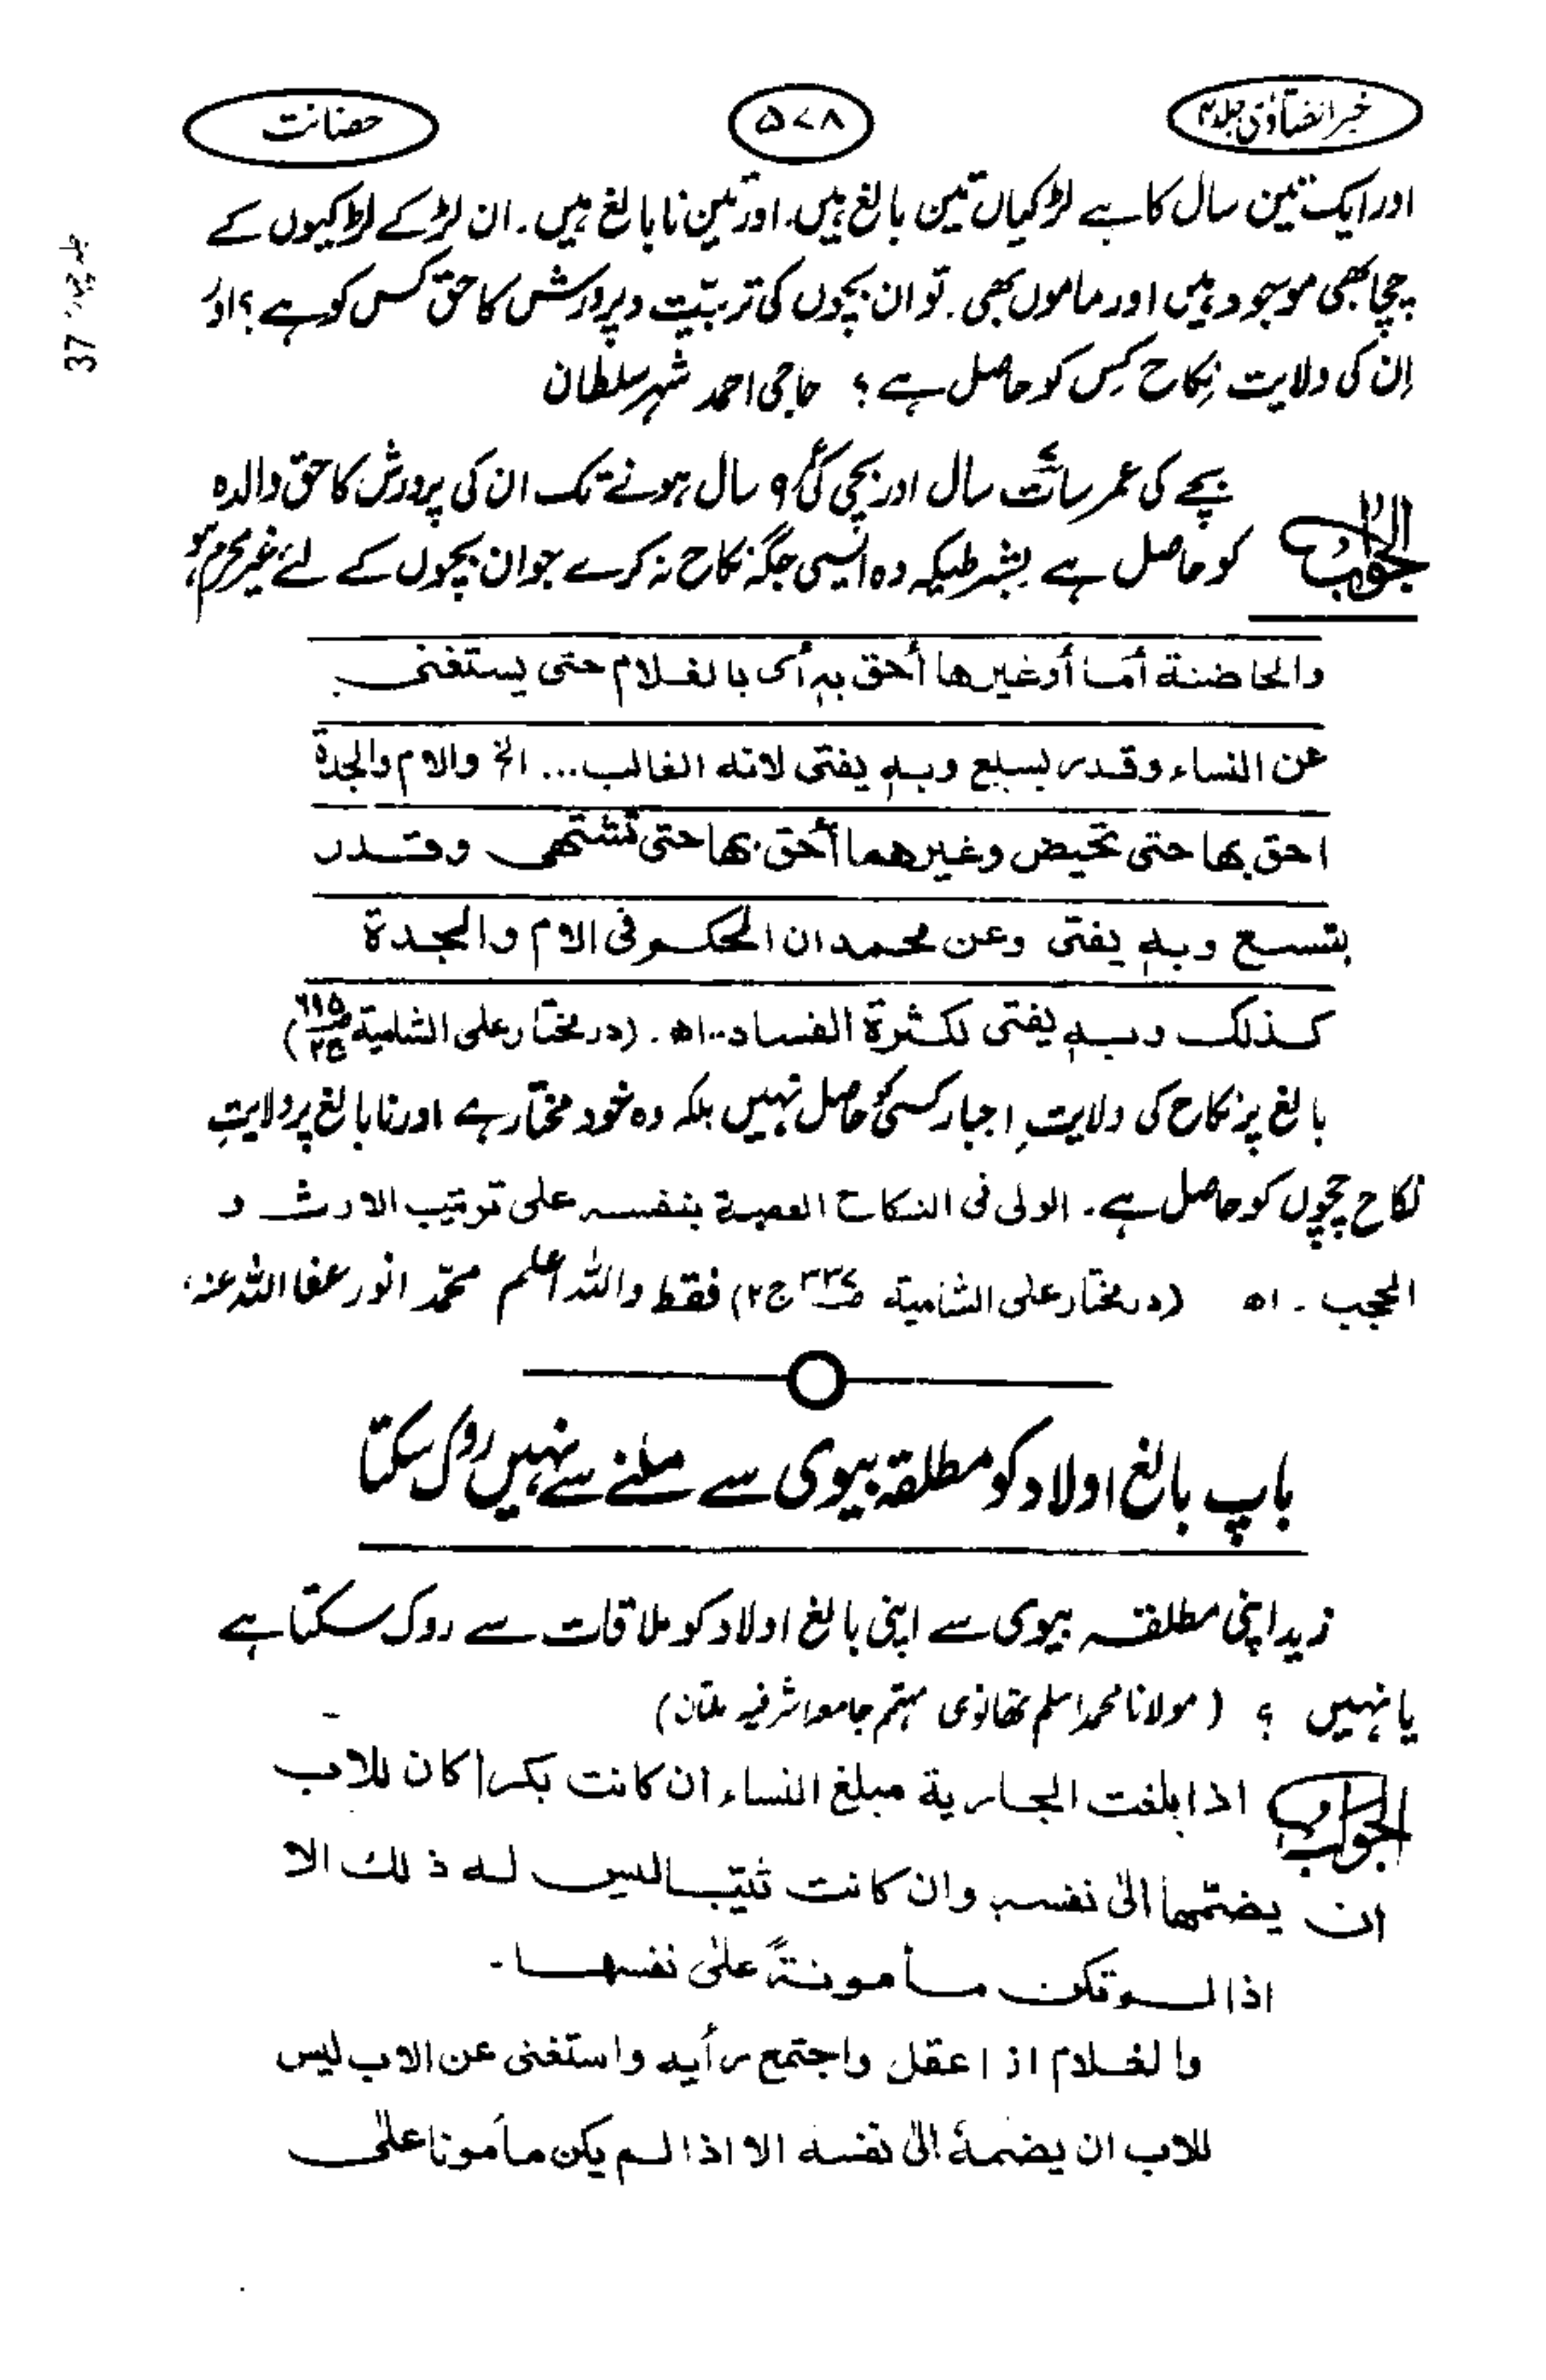 خیر الفتاویٰ جلد ۴
۵۷۸
حضانت
اور ایک تین سال کا ہے لڑکیاں تین بالغ ہیں، اور تین نابالغ ہیں۔ ان لڑکے لڑکیوں کے
چچا بھی موجود ہیں اور ماموں بھی۔ تو ان بچوں کی تربیّت و پرورش کا حق کس کو ہے؟ اور
اِن کی ولایت نِکاح کِس کو حاصل ہے؟ حاجی احمد شہر سلطان
الجواب
بچے کی عمر سات سال اور بچی کی ۹ سال ہونے تک ان کی پرورش کا حق والدہ
کو حاصل ہے بشرطیکہ وہ ایسی جگہ نکاح نہ کرے جو ان بچوں کے لئے غیر محرم ہو،
والحاضنة أما أو غيرها أحق به أى بالغلام حتى يستغنى
عن النساء وقدر بسبع وبه يفتى لانه الغالب... الخ والام والجدة
احق بها حتى تحيض وغيرهما أحق بها حتى تشتهى وقدر
بتسع وبه يفتى وعن محمد ان الحكم فى الام والجدة
كذلك وبه يفتى لكثرة الفساد.. اھ۔ (در مختار علی الشامیة ص۶۹۵ ج۲)
بالغ پر نکاح کی ولایتِ اجبار کسی کو حاصل نہیں بلکہ وہ خود مختار ہے اور نابالغ پر ولایتِ
نکاح چچوں کو حاصل ہے۔ الولى فى النكاح العصبة بنفسه على ترتيب الارث و
الحجب۔ اھ (در مختار علی الشامیة ص۳۳۷ ج۲) فقط واللہ اعلم محمّد انور عفا اللہ عنہ،
باپ بالغ اولاد کو مطلقہ بیوی سے ملنے سے نہیں روک سکتا
زید اپنی مطلقہ بیوی سے اپنی بالغ اولاد کو ملاقات سے روک سکتا ہے
یا نہیں ؟ (مولانا محمد اسلم تھانوی مہتمم جامعہ اشرفیہ ملتان)
الجواب
اذا بلغت الجارية مبلغ النساء ان كانت بكرا كان للاب
ان يضمّها الىٰ نفسه وان كانت ثيّبا ليس له ذلك الا
اذا لم تكن مأمونةً علىٰ نفسها۔
والغلام اذا عقل واجتمع رأيه واستغنى عن الاب ليس
للاب ان يضمهٗ الىٰ نفسه الا اذا لم يكن مأمونا علىٰ
37